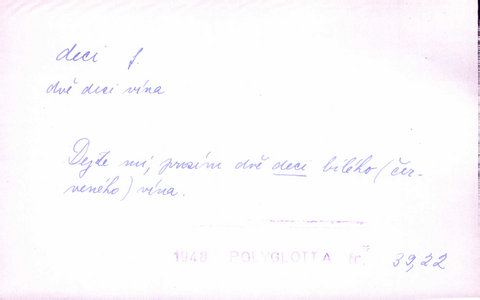 deci f.
dvě deci vína
Dejte mi, prosím dvě deci bílého (čer-
veného) vína.
1948 POLYGLOTTA fr. 39,22